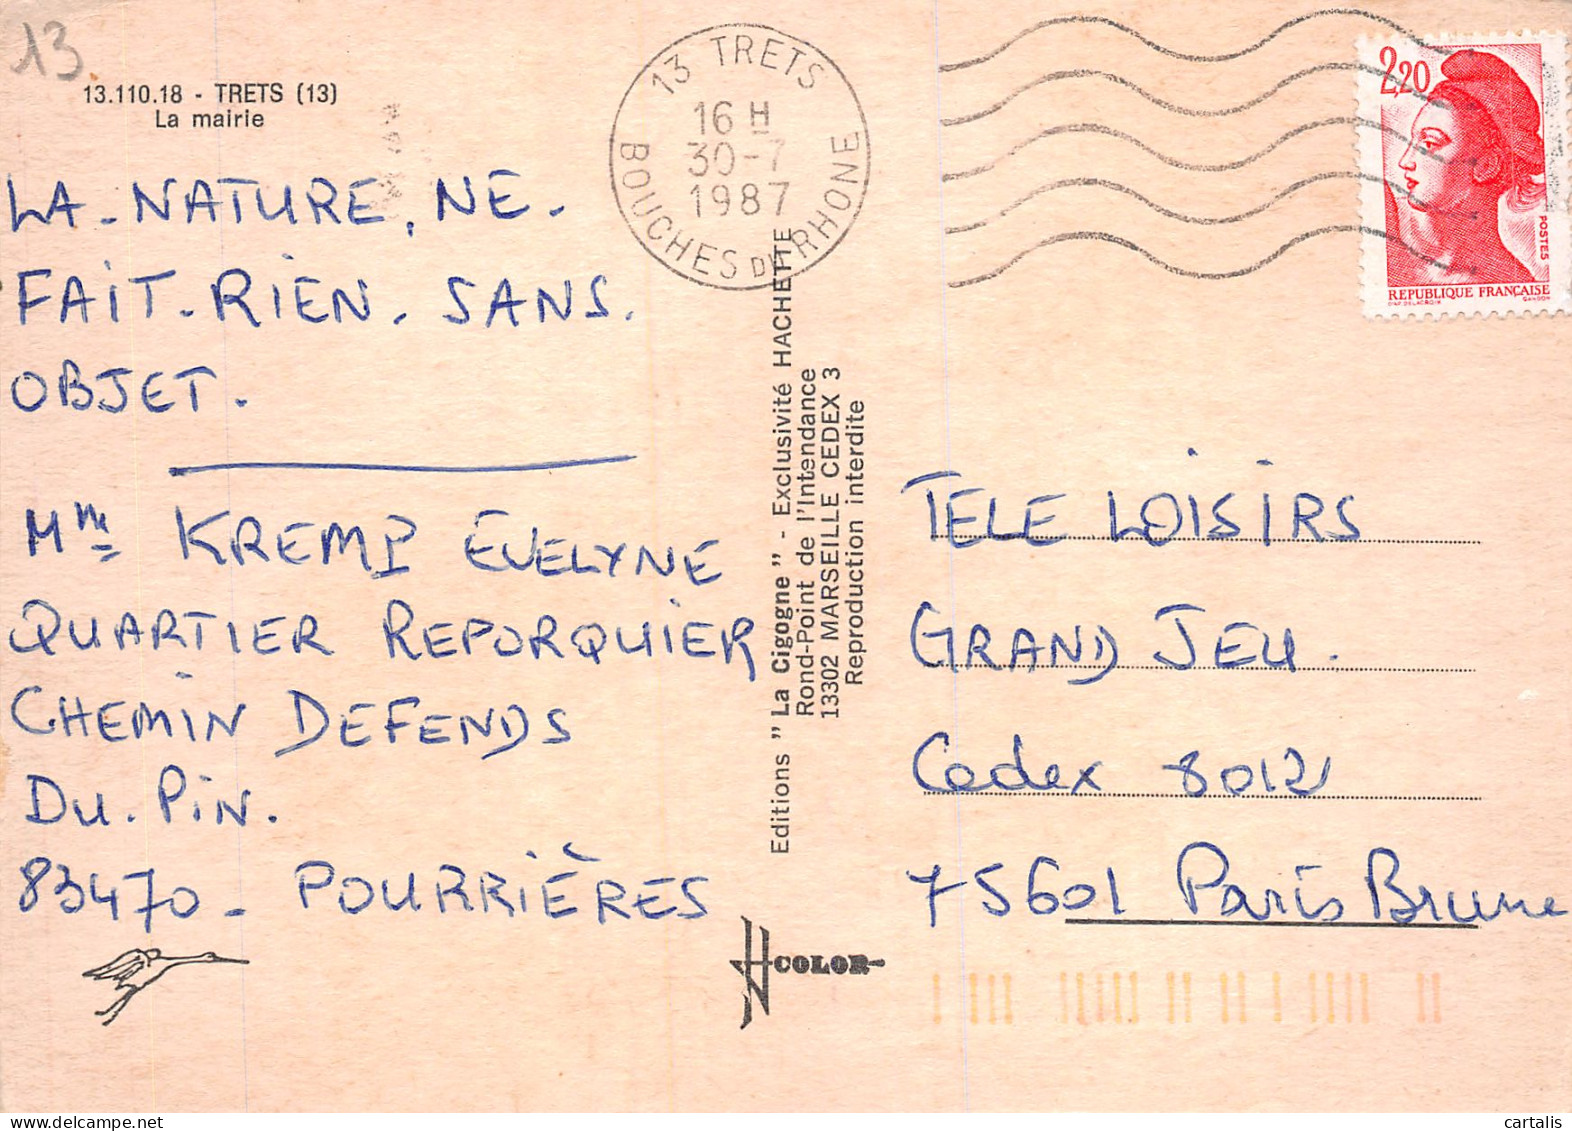 13
13.110.18 - TRETS (13)
La mairie
LA. NATURE. NE.
FAIT. RIEN. SANS.
OBJET.
Mme KREMPI EVELYNE
QUARTIER REPORQUIER
CHEMIN DEFENDS
DU. PIN.
83470 - POURRIÈRES
13 TRETS
16 H
30-7
1987
BOUCHES DU RHONE
Editions " La Cigogne " - Exclusivité HACHETTE
Rond-Point de l'Intendance
13302 MARSEILLE CEDEX 3
Reproduction interdite
COLOR
2,20
POSTES
REPUBLIQUE FRANÇAISE
D'AP. DELACROIX GANDON
TELE LOISIRS
GRAND JEU.
Cedex 8012
75601 Paris Brune
cartalis
delcampe.net